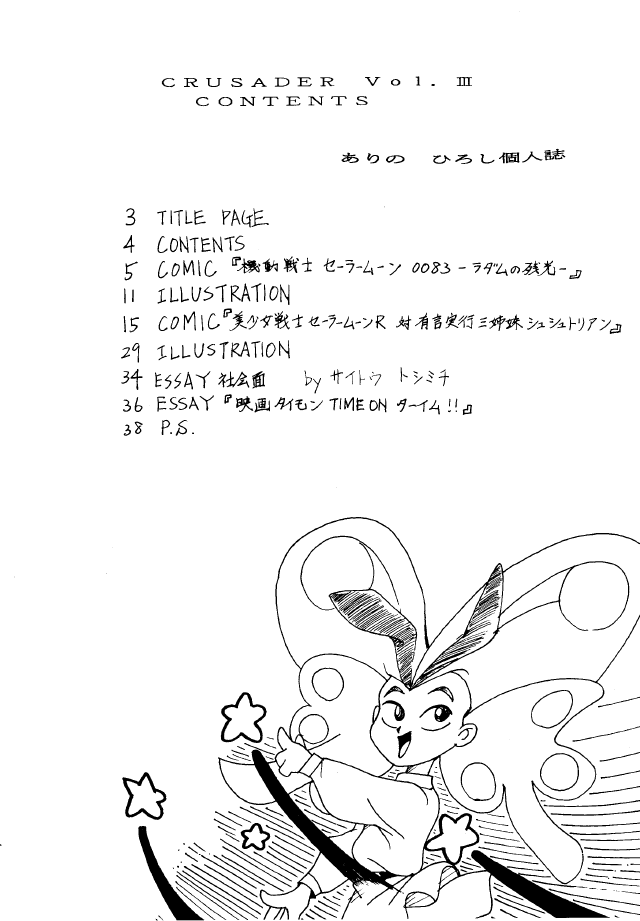 CRUSADER Vol.Ⅲ
CONTENTS
ありの ひろし個人誌
3 TITLE PAGE
4 CONTENTS
5 COMIC『機動戦士 セーラームーン 0083-ラダムの残光-』
11 ILLUSTRATION
15 COMIC『美少女戦士セーラームーンR 対 有言実行三姉妹シュシュトリアン』
29 ILLUSTRATION
34 ESSAY 社会面 by サイトウ トシミチ
36 ESSAY『映画タイモン TIME ON ターイム!!』
38 P.S.